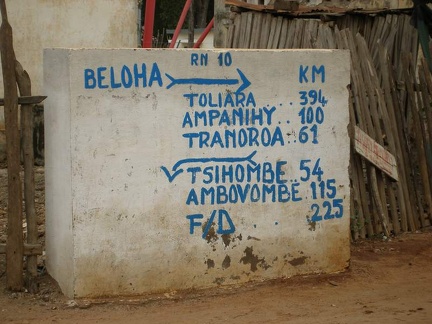 RN 10
BELOHA → KM
TOLIARA .. 394
AMPANIHY .. 100
TRANOROA .. 61
←
TSIHOMBE .. 54
AMBOVOMBE .. 115
F/D .. 225